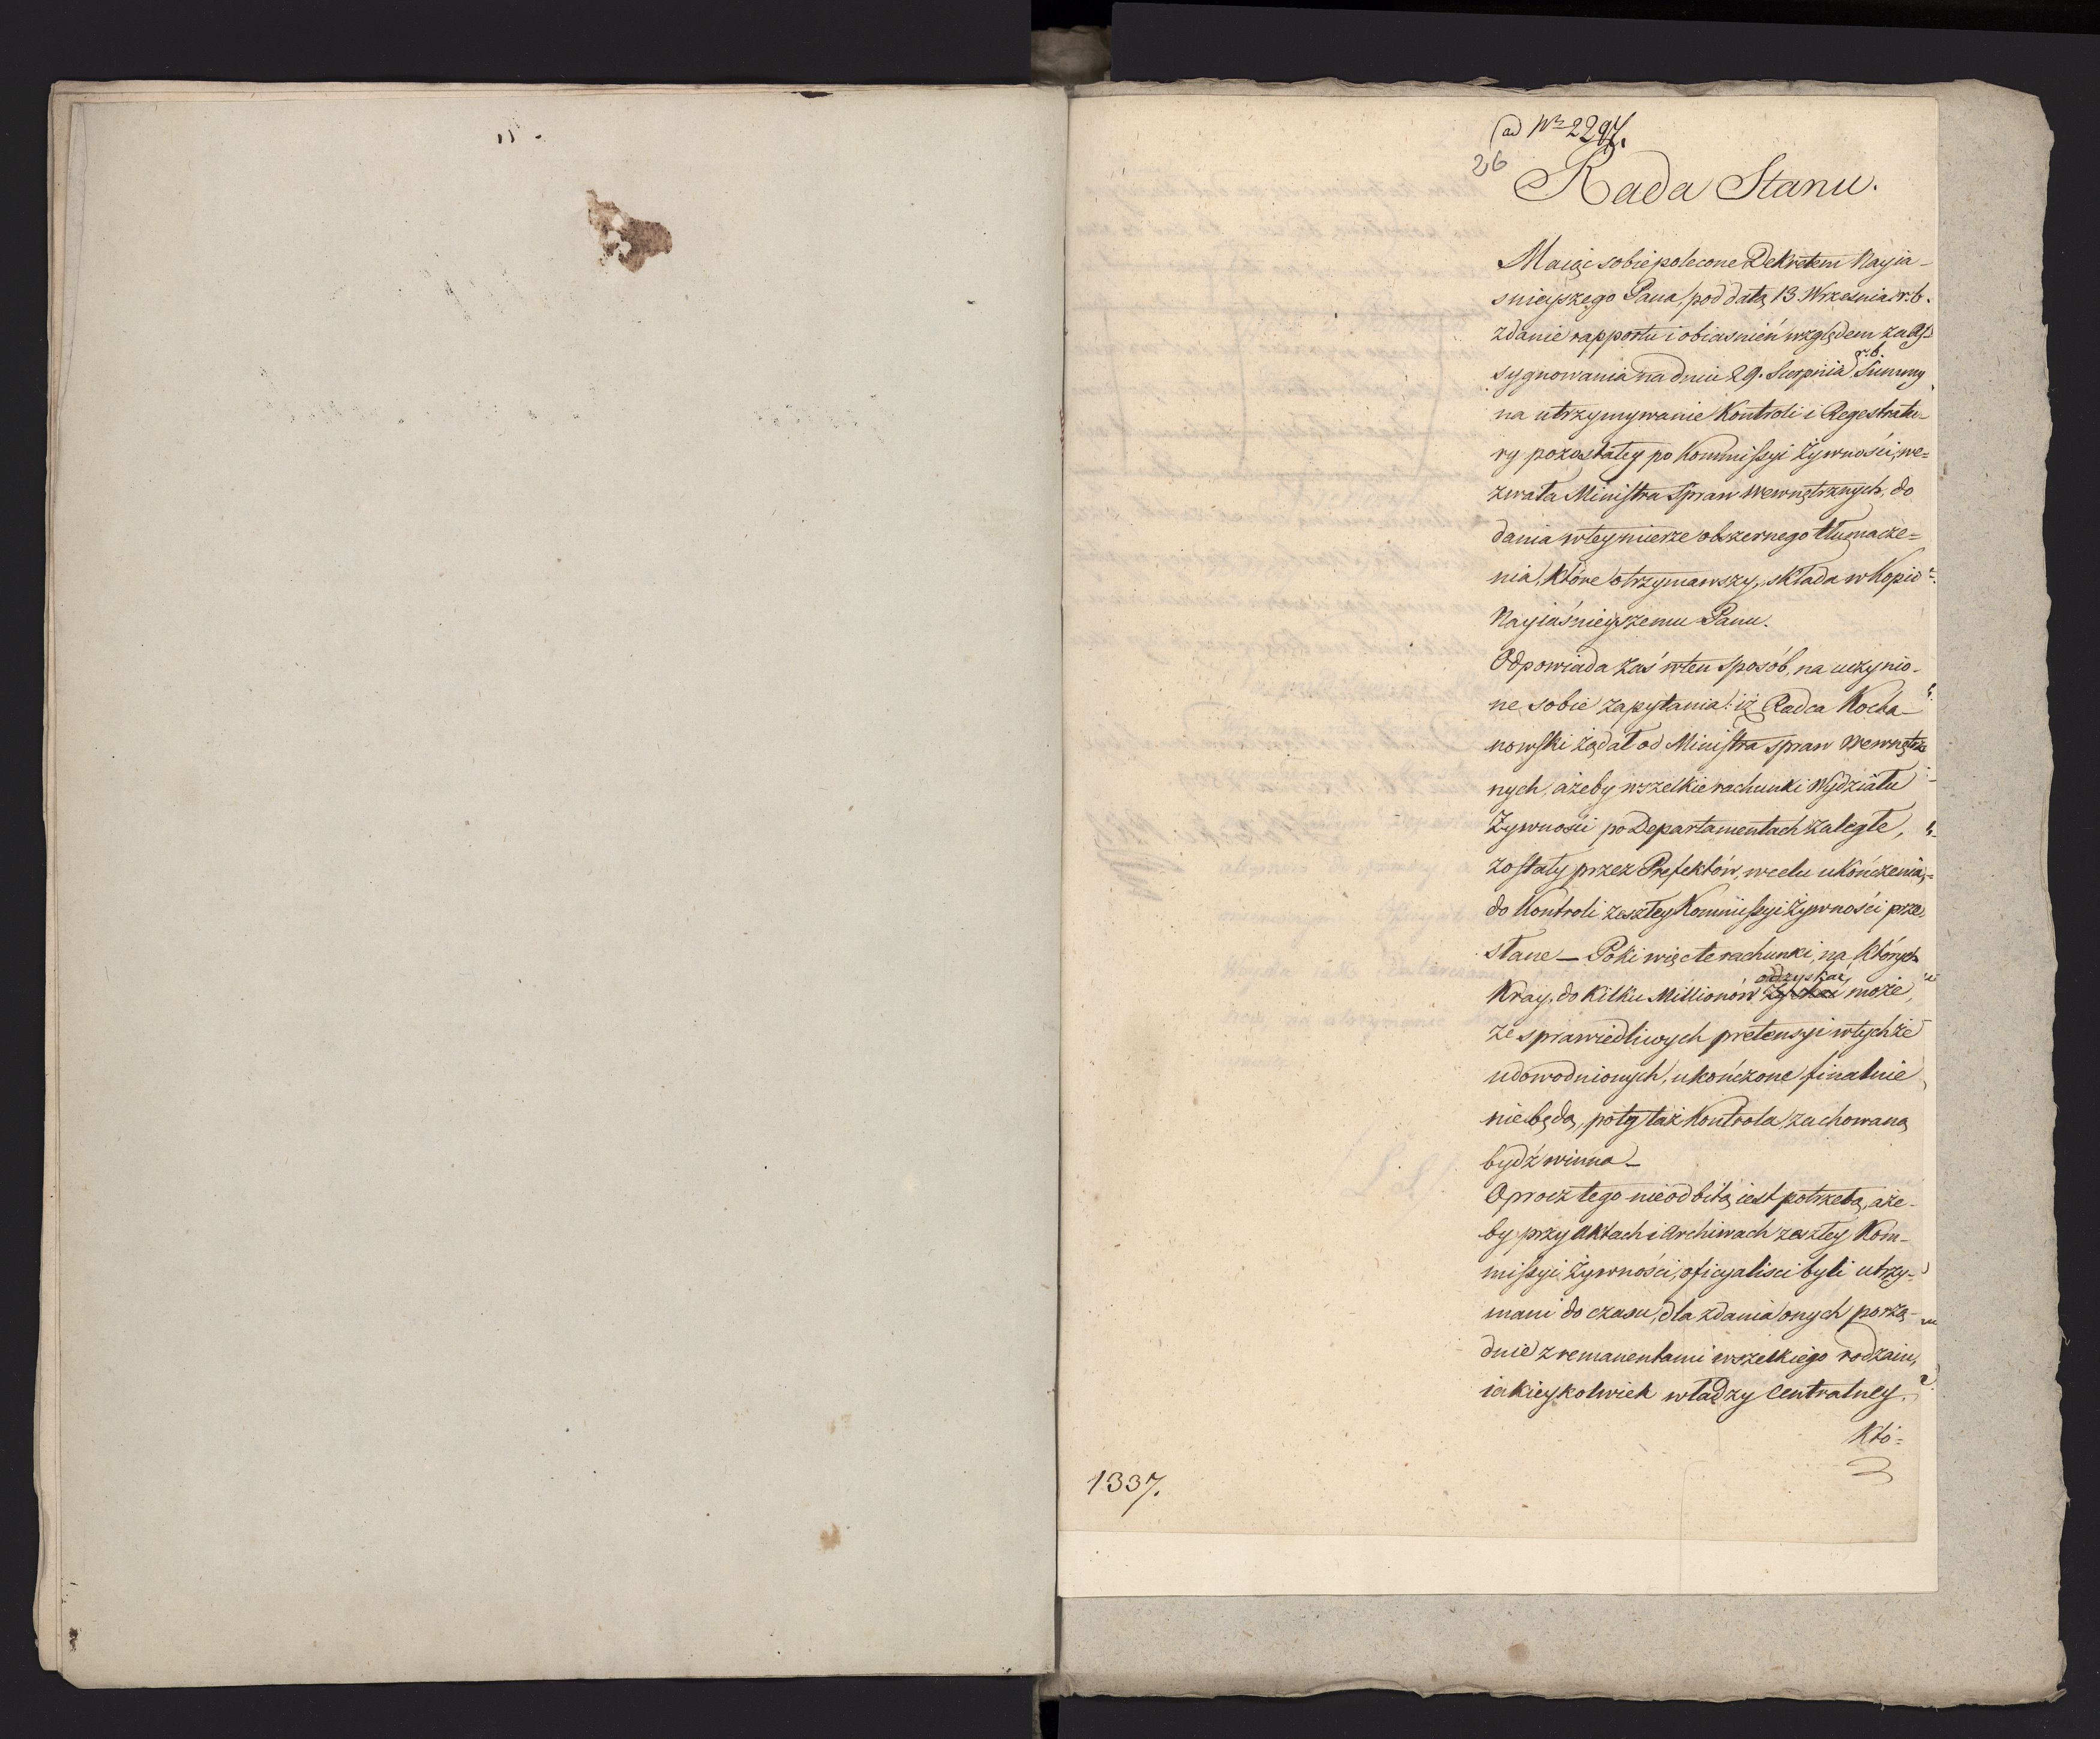 ad Nro 2297.
26
Rada Stanu.
Maiąc sobie polecone Dekretem Nayia-
śnieyszego Pana, pod datą 13 Września r. b.
zdanie rapportu i obiaśnień względem zaas-
sygnowania na dniu 29. Sierpnia r. b. Summy
na utrzymywanie Kontroli i Regestratu-
ry pozostałey po Kommissyi Żywności, we=
zwała Ministra Spraw Wewnętrznych, do
dania w tey mierze obszernego tłumacze=
nia, które otrzymawszy, składa w Kopii
Nayiaśnieyszemu Panu.
Odpowiada zaś w ten sposób, na uczynio-
ne sobie zapytania: iż Radca Kocha-
nowski żądał od Ministra spraw Wewnętrz
nych, ażeby wszelkie rachunki Wydziału
Żywności po Departamentach zaległe,
zostały przez Prefektów, w celu ukończenia,
do Kontroli zeszłey Kommissyi Żywności prze
słane – Póki więc te rachunki, na których
Kray, do kilku Millionów zyskać odzyskać może,
ze sprawiedliwych pretensyi w tychże
udowodnionych, ukończone finalnie
nie będą, póty taż Kontrola zachowaną
bydź winna –
Oprocz tego nieodbitą iest potrzebą, aże-
by przy aktach i Archiwach zeszłey Kom-
missyi Żywności, oficyaliści byli utrzy-
mani do czasu, dla zdania onych porzą-
dnie z remanentami wszelkiego rodzaiu,
iakieykolwiek władzy Centralney.
któ=
1337.